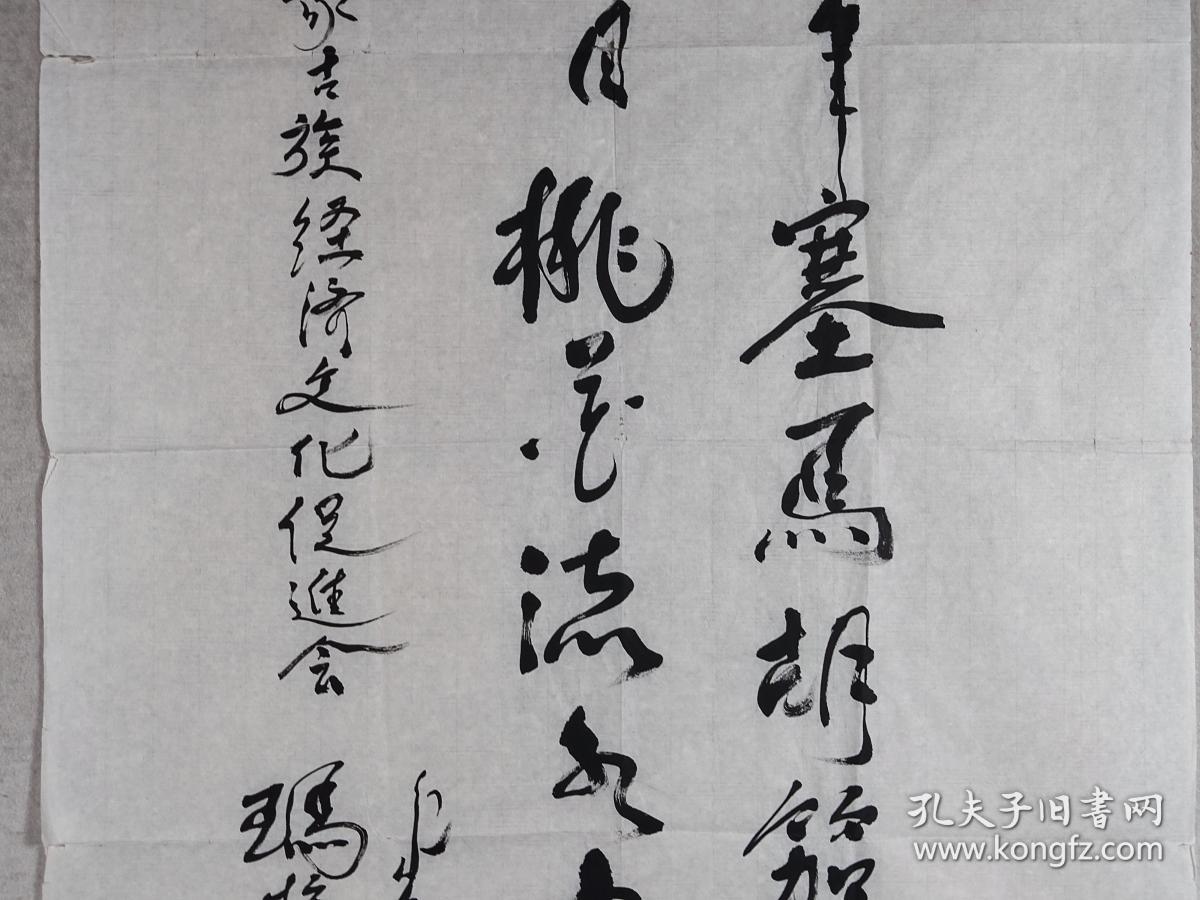 年塞馬胡笳
月桃花流水
古族經濟文化促進会
瑪
孔夫子旧書网
www.kongfz.com